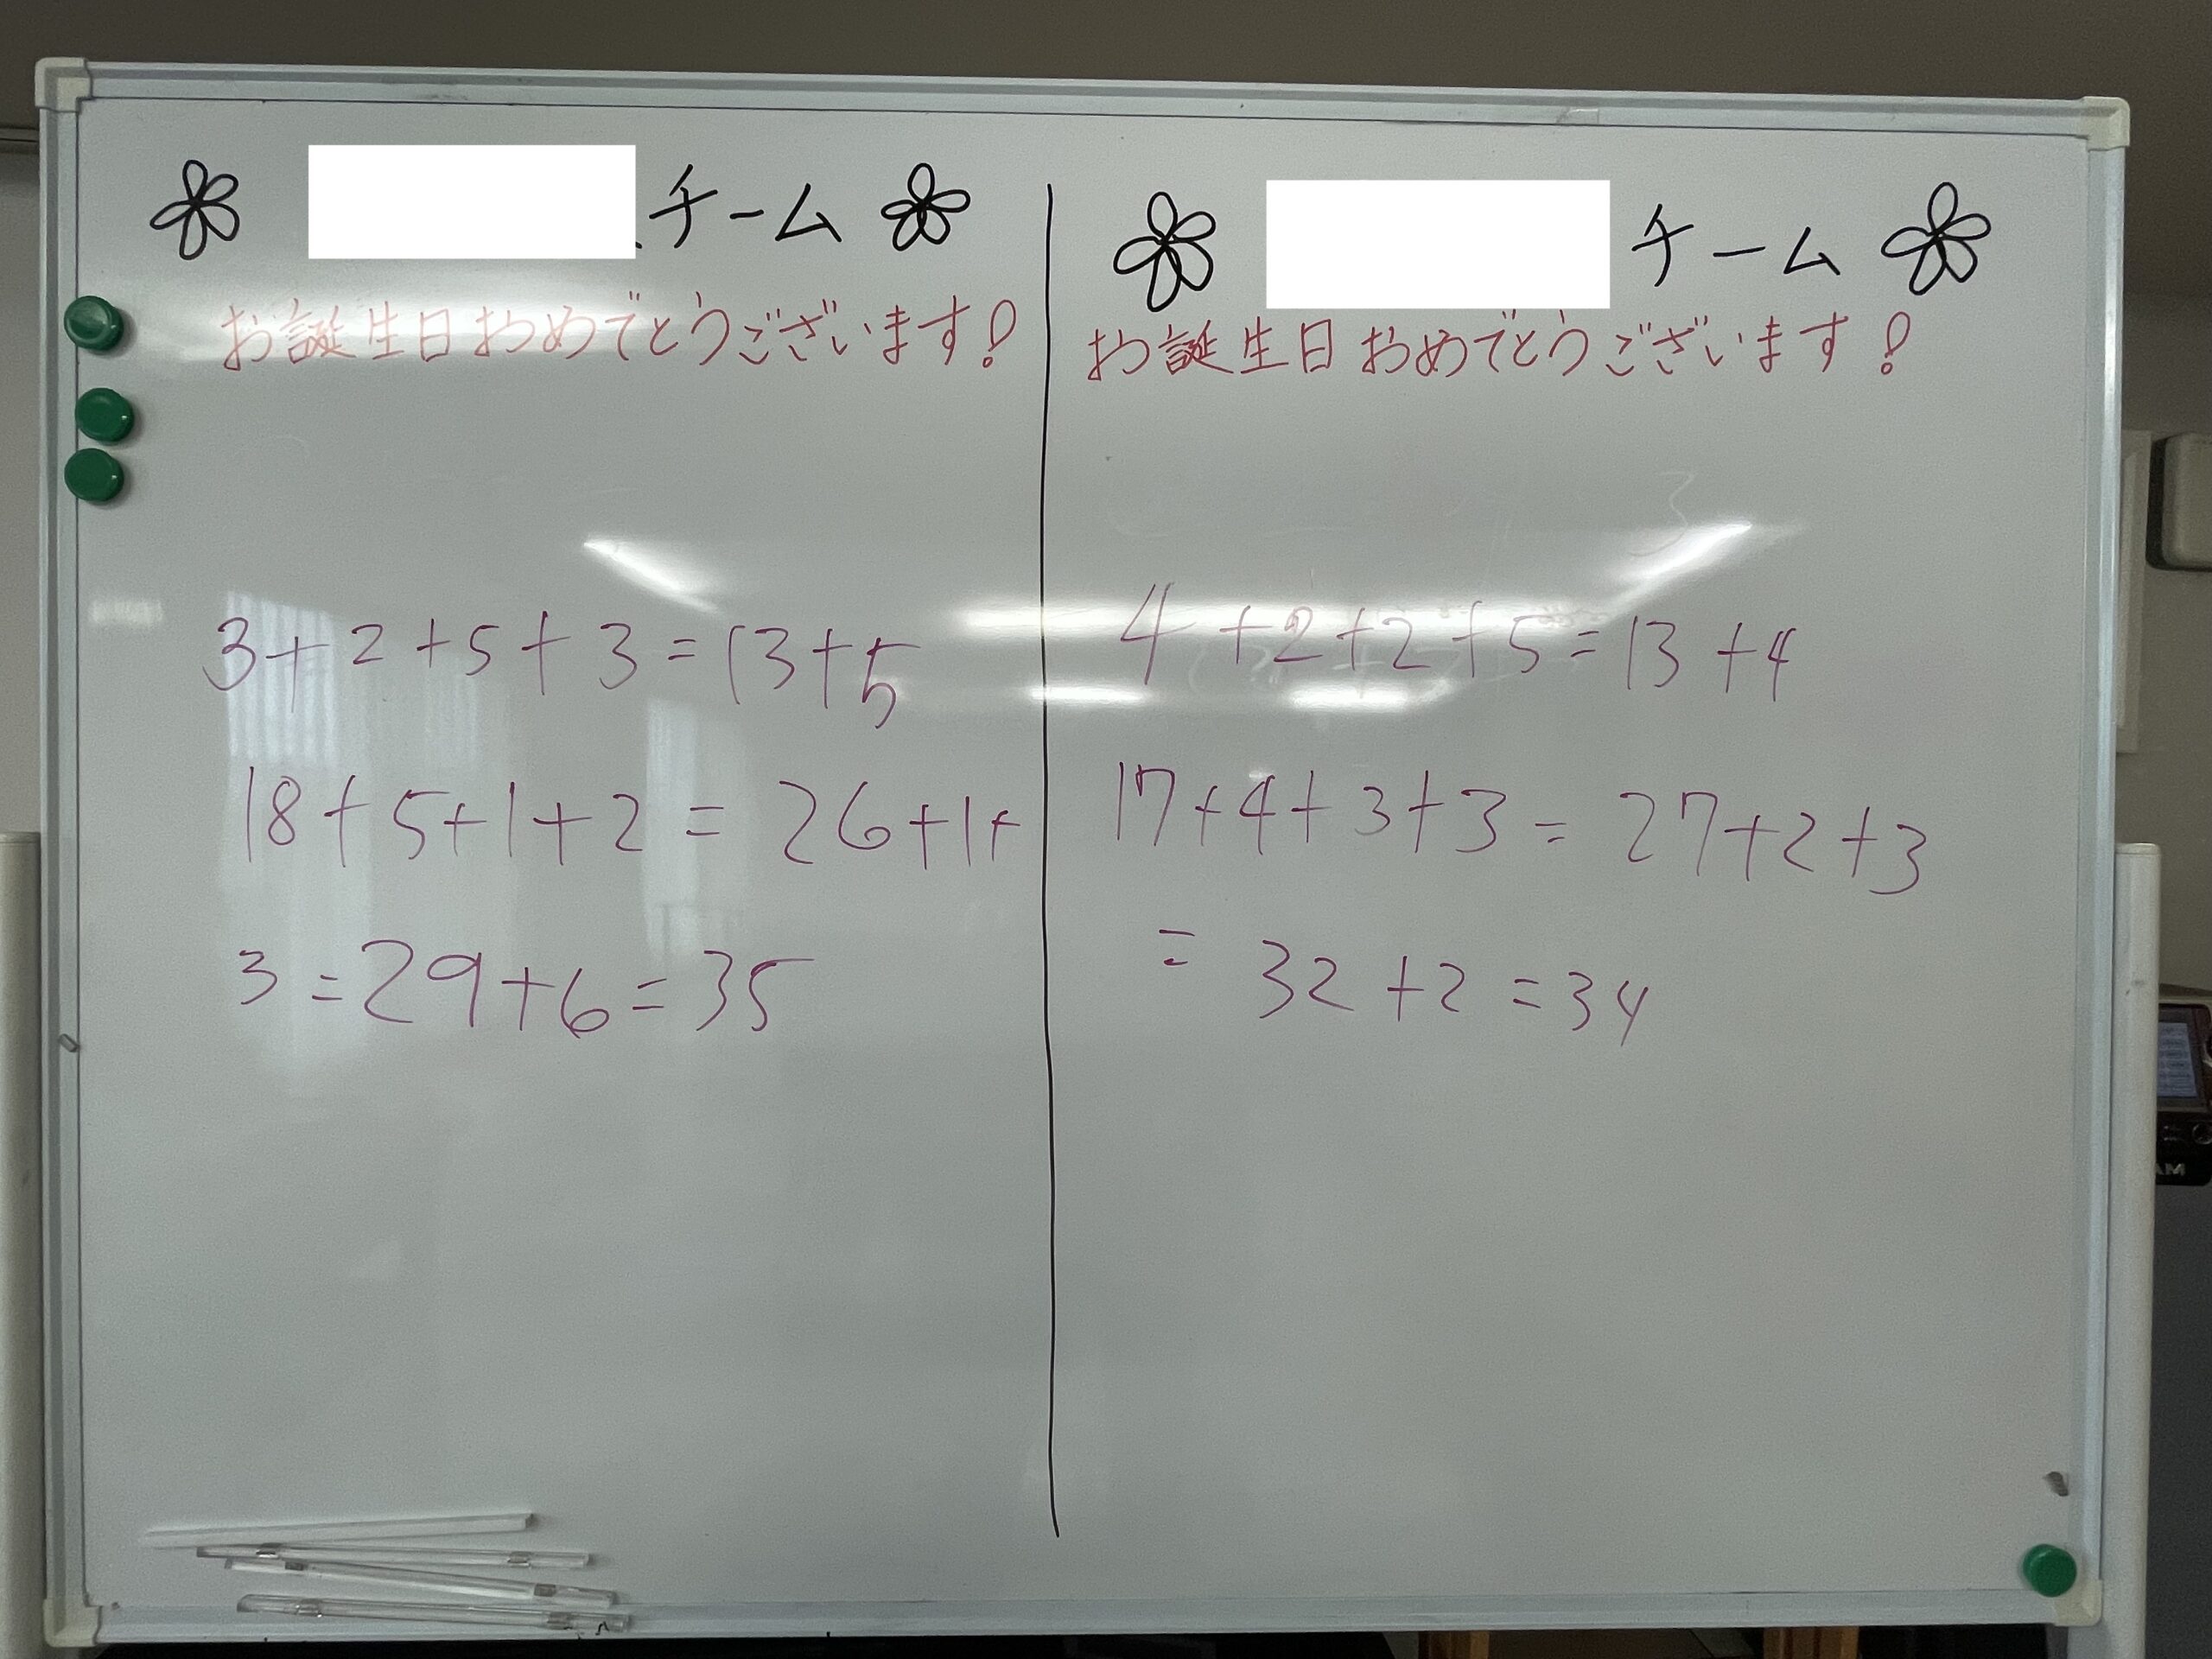 チーム
お誕生日おめでとうございます!
3+2+5+3=13+5
18+5+1+2=26+1+
3=29+6=35
チーム
お誕生日おめでとうございます!
4+2+2+5=13+4
17+4+3+3=27+2+3
=32+2=34
AM